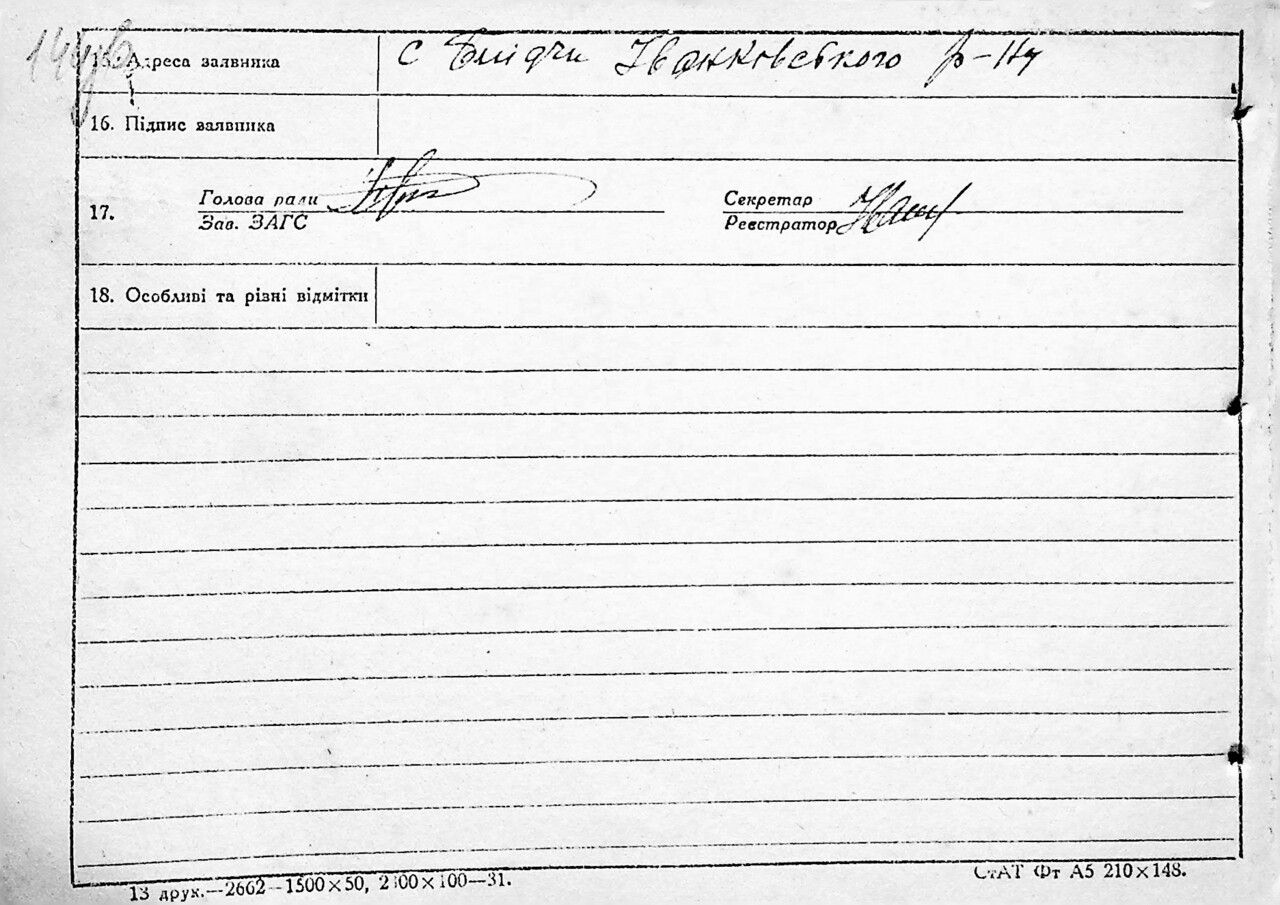 144 зв
15. Адреса заявника с Блідчи Іванковського р-ну
16. Підпис заявника
17. Голова ради Секретар
Зав. ЗАГС Реєстратор
18. Особливі та різні відмітки
13 друк.—2662—1500×50, 2300×100—31. СтАТ Фт А5 210×148.